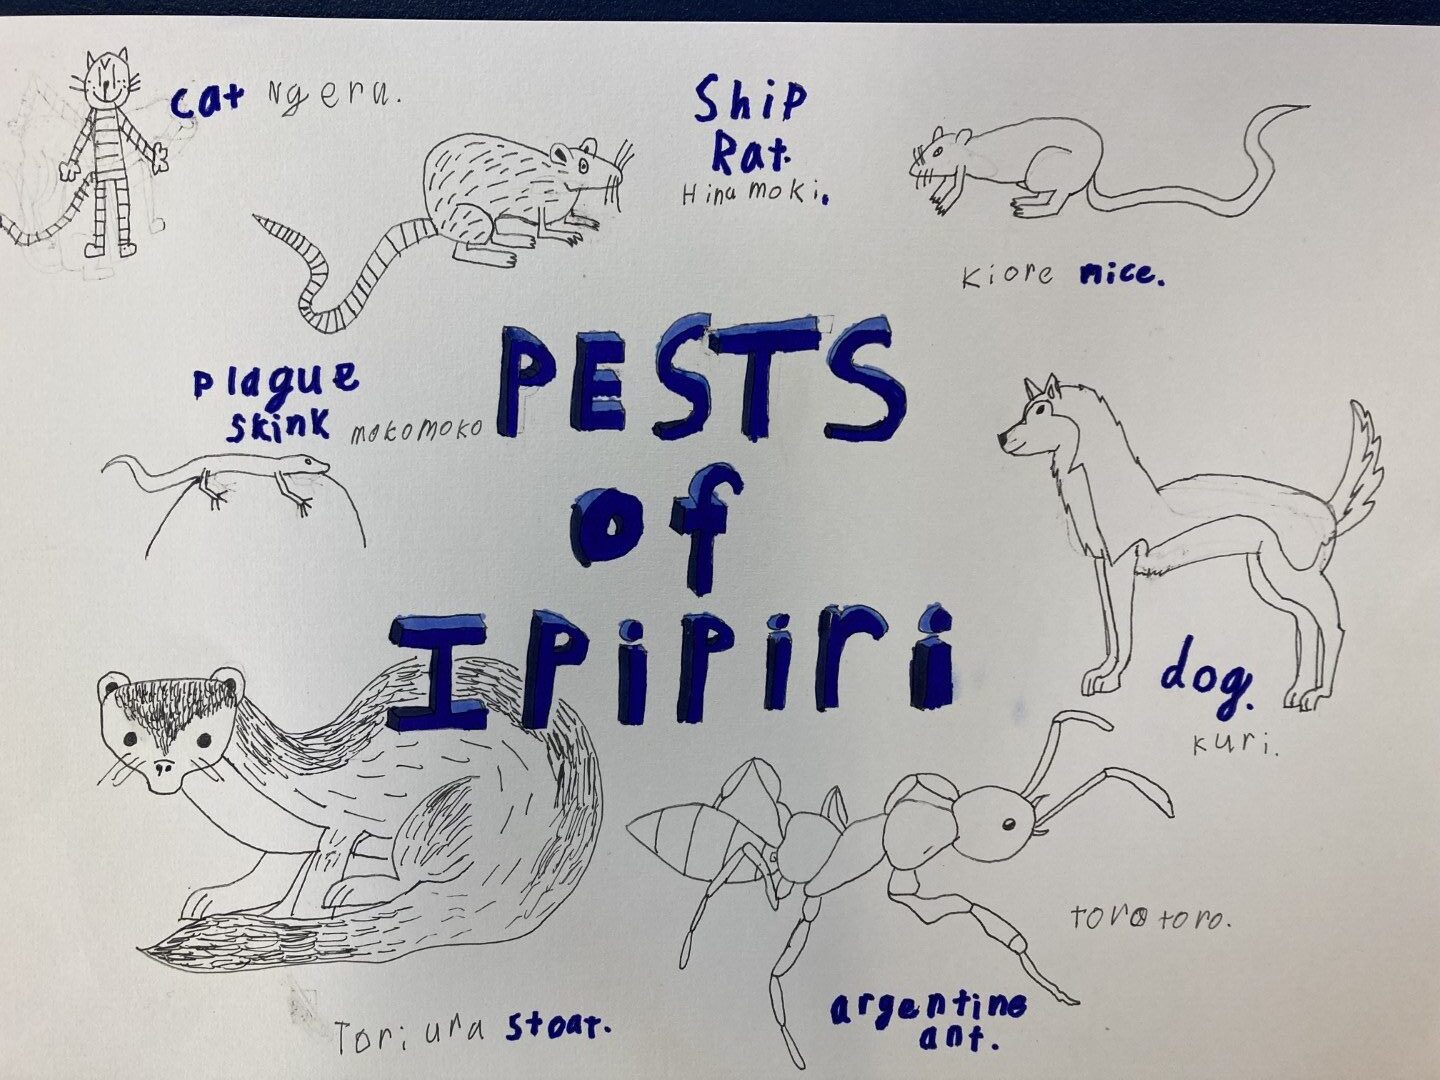 cat Ngeru.
Ship
Rat.
Hinamoki.
Kiore mice.
PESTS
of
Ipipiri
plague
skink mokomoko
dog.
Kuri.
torotoro.
argentine
ant.
Tori ura stoat.